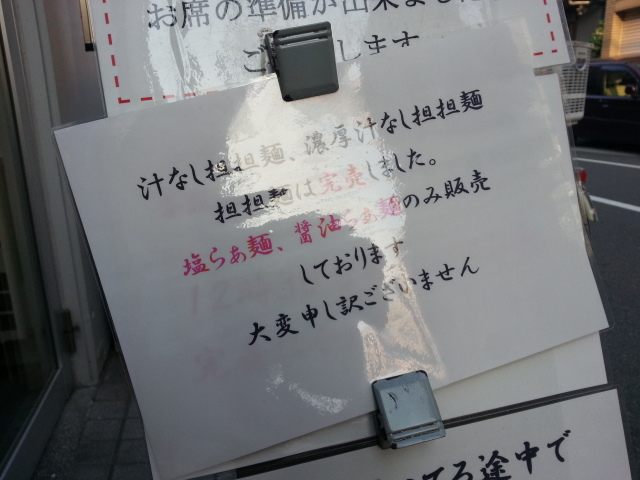 お席の準備が出来ました
します
汁なし担担麺、濃厚汁なし担担麺
担担麺は完売しました。
塩らぁ麺、醤油らぁ麺のみ販売
しております
大変申し訳ございません
てる途中で